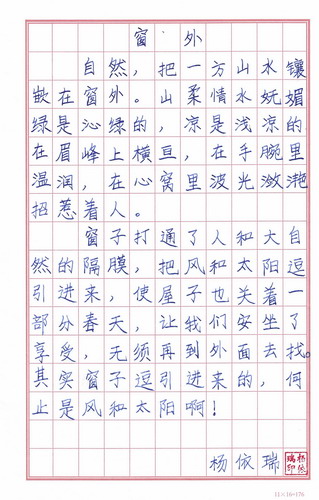 窗 外
自然，把一方山水镶
嵌在窗外。山柔情水妩媚
绿是沁绿的，凉是浅凉的
在眉峰上横亘，在手腕里
温润，在心窝里波光潋滟
招惹着人。
窗子打通了人和大自
然的隔膜，把风和太阳逗
引进来，使屋子也关着一
部分春天，让我们安坐了
享受，无须再到外面去找。
其实窗子逗引进来的，何
止是风和太阳啊！
杨依瑞
杨依
瑞印
11×16=176